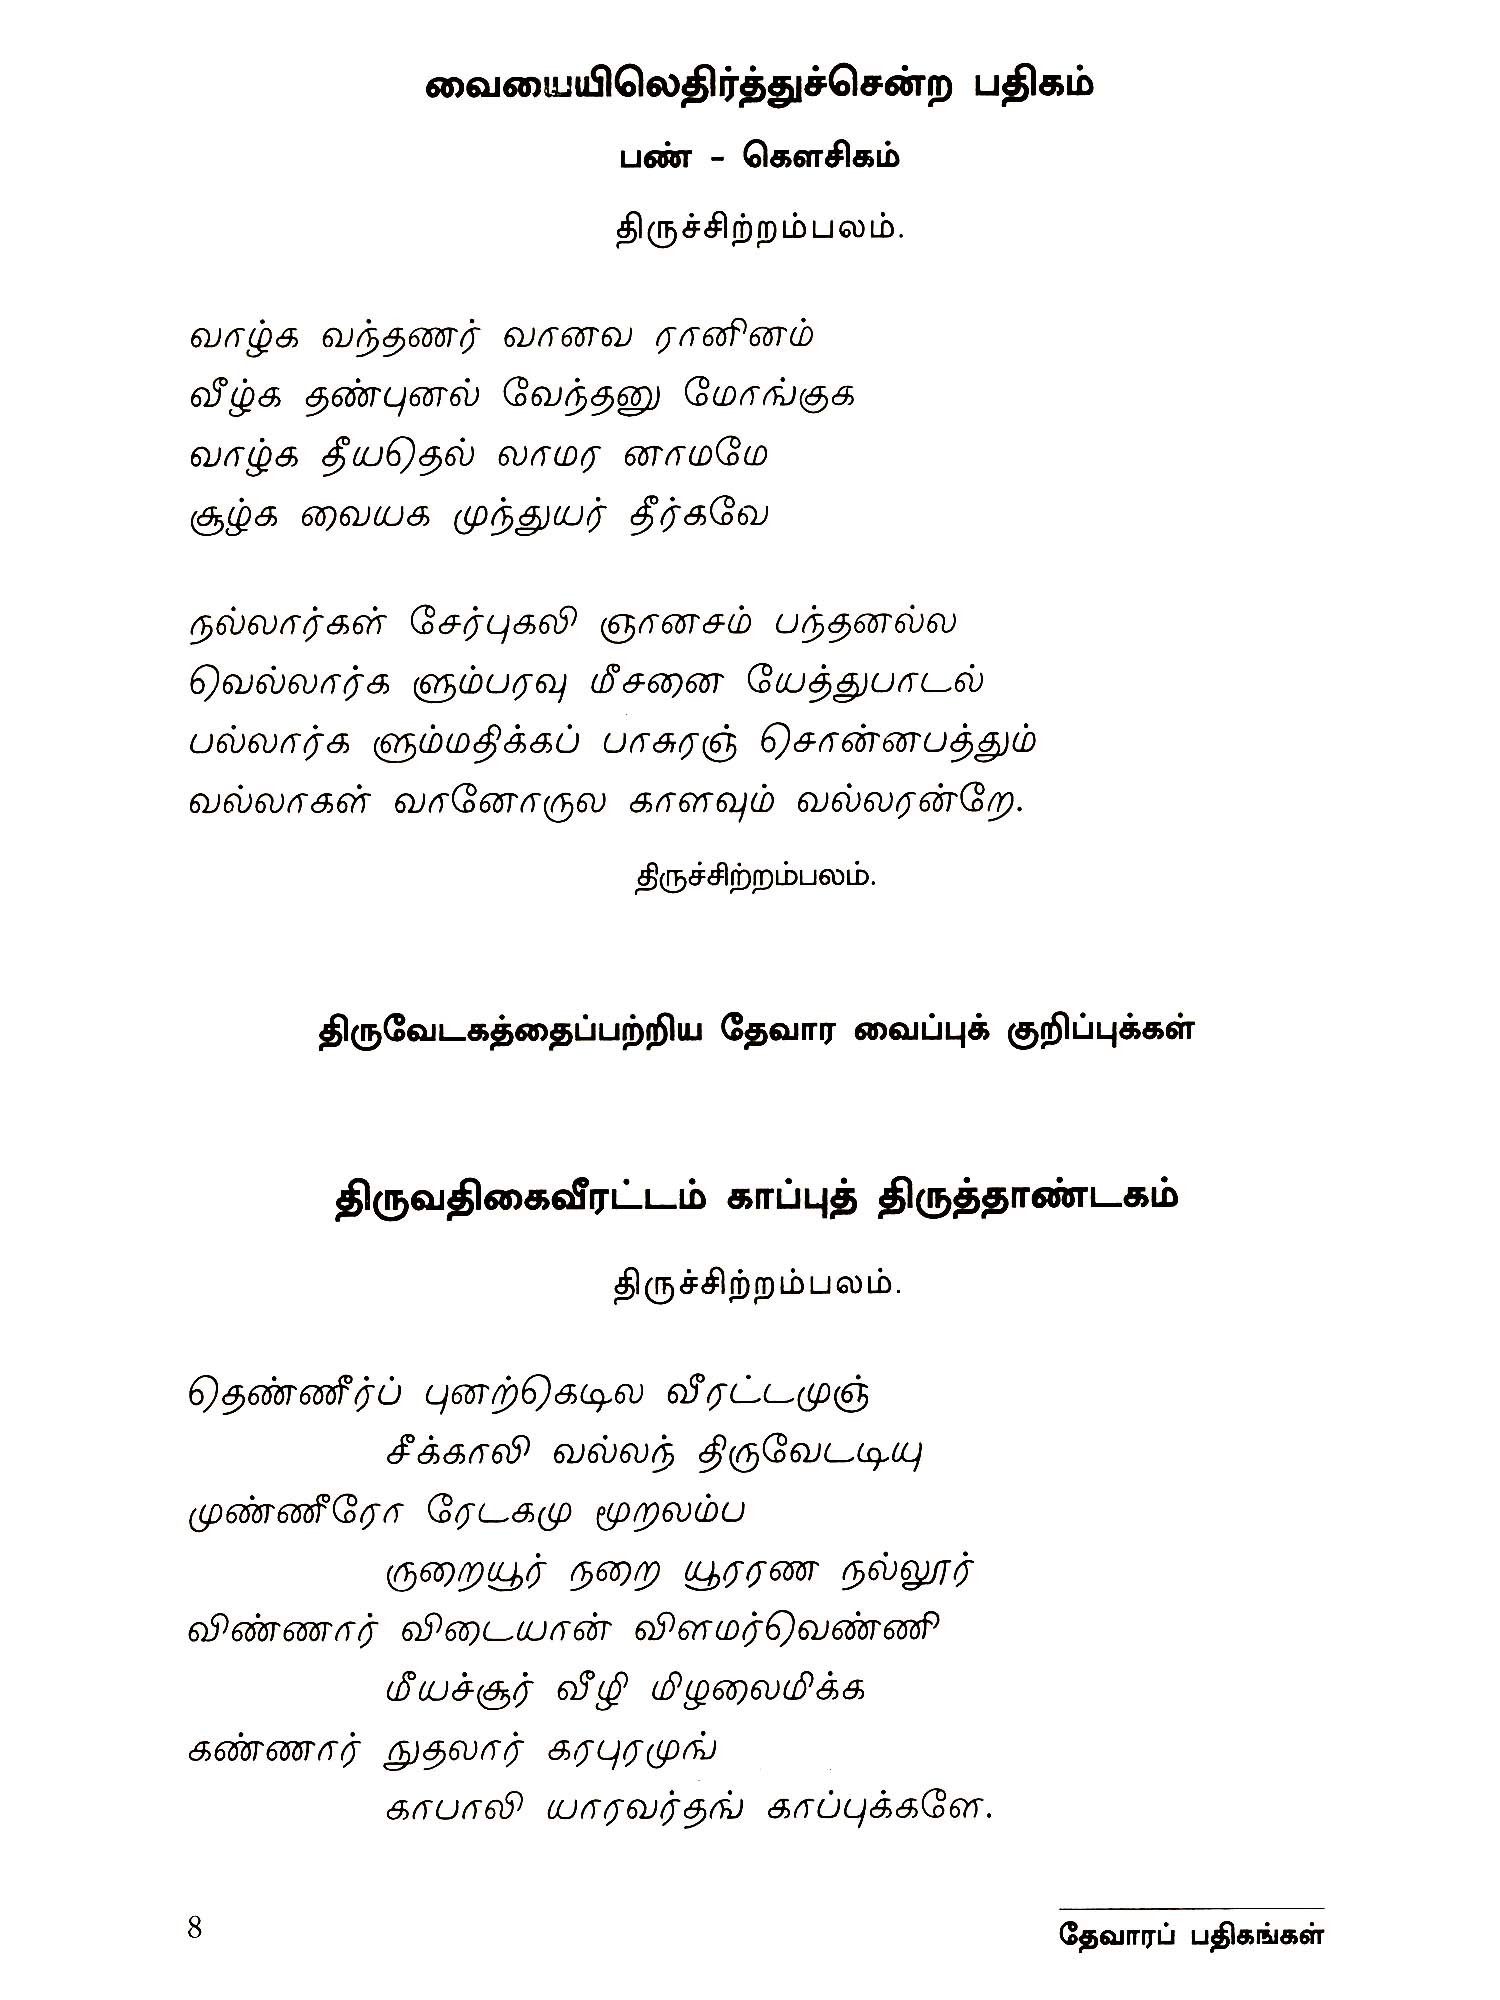 வையையிலெதிர்த்துச்சென்ற பதிகம்
பண் - கௌசிகம்
திருச்சிற்றம்பலம்.
வாழ்க வந்தணர் வானவ ரானினம்
வீழ்க தண்புனல் வேந்தனு மோங்குக
வாழ்க தீயதெல் லாமர னாமமே
சூழ்க வையக முந்துயர் தீர்கவே
நல்லார்கள் சேர்புகலி ஞானசம் பந்தனல்ல
வெல்லார்க ளும்பரவு மீசனை யேத்துபாடல்
பல்லார்க ளும்மதிக்கப் பாசுரஞ் சொன்னபத்தும்
வல்லாகள் வானோருல காளவும் வல்லரன்றே.
திருச்சிற்றம்பலம்.
திருவேடகத்தைப்பற்றிய தேவார வைப்புக் குறிப்புக்கள்
திருவதிகைவீரட்டம் காப்புத் திருத்தாண்டகம்
திருச்சிற்றம்பலம்.
தெண்ணீர்ப் புனற்கெடில வீரட்டமுஞ்
சீக்காலி வல்லந் திருவேடடியு
முண்ணீரோ ரேடகமு மூறலம்ப
ருறையூர் நறை யூரரண நல்லூர்
விண்ணார் விடையான் விளமர்வெண்ணி
மீயச்சூர் வீழி மிழலைமிக்க
கண்ணார் நுதலார் கரபுரமுங்
காபாலி யாரவர்தங் காப்புக்களே.
8
தேவாரப் பதிகங்கள்